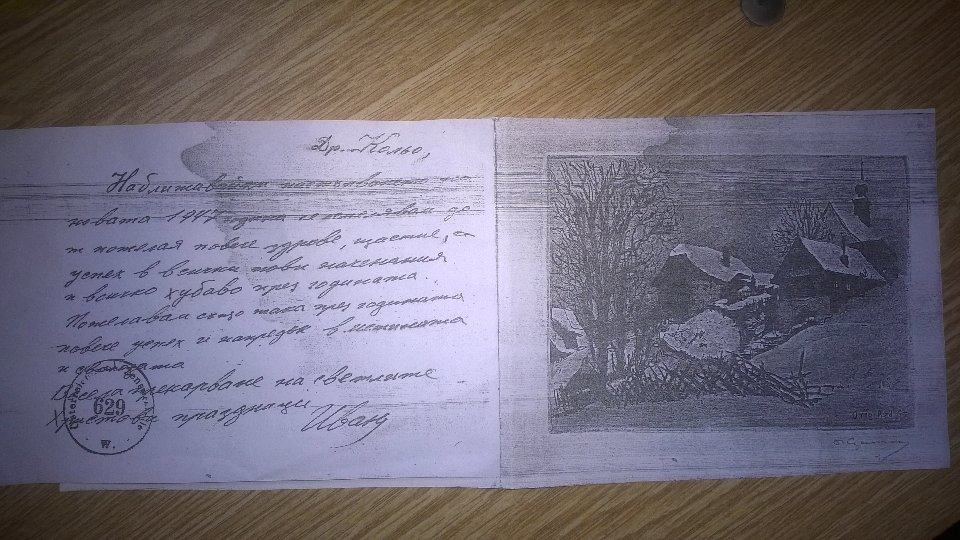 Др. Кольо,
Наближавайки
новата 1947 година
ти пожелая повече здраве, щастие,
успех в всички твои начинания
и всичко хубаво през годината.
Пожелавам също така през годината
повече успех и напредък в
и
Весело прекарване на светлите
Христови празници
Иван
629
W.